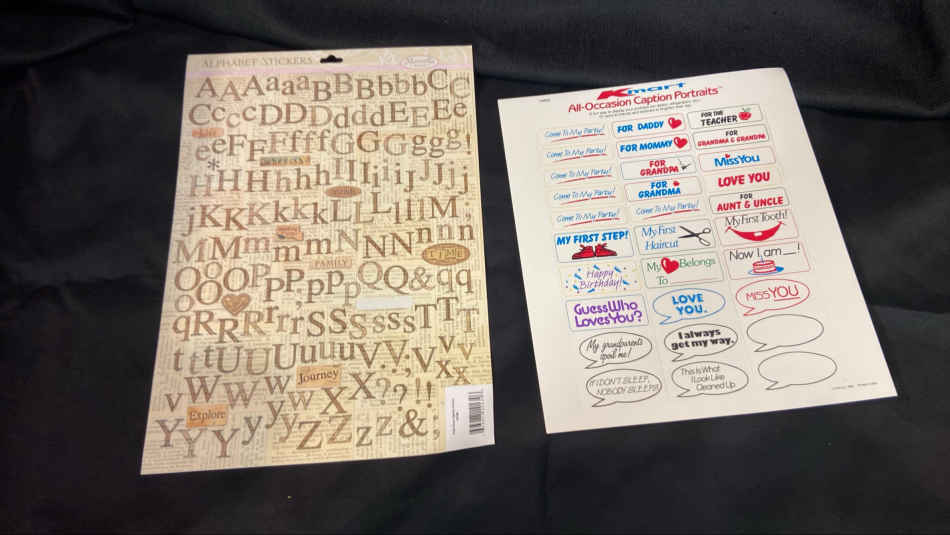 ALPHABET STICKERS
AAAaaaBBBbbbCC
CCccDDDddEEEe
LIFE
eeFFFffffGGGggg!
*
HHHhhhIIIiiiJJJj
HOME
jKKKkkkLLLlllM;
MMmmmmNNNnnnn
FAMILY
TIME
OOOoPPpppQQ&qq
qRRRrrrSSSssssTTT
tttUUUuuuVVVv
vWWwwwXXX??!!
Journey
Explore
YYYyyyZZZzzz&;
Kmart
All-Occasion Caption Portraits™
Come To My Party!
FOR DADDY
FOR THE TEACHER
Come To My Party!
FOR MOMMY
FOR GRANDMA & GRANDPA
Come To My Party!
FOR GRANDPA
MISS YOU
Come To My Party!
FOR GRANDMA
LOVE YOU
Come To My Party!
Come To My Party!
FOR AUNT & UNCLE
MY FIRST STEP!
My First Haircut
My First Tooth!
Happy Birthday!
My Belongs To
Now I am __!
GUESS WHO LOVES YOU?
LOVE YOU.
MISS YOU
My grandparents spoil me!
I always get my way.
IF I DON'T SLEEP, NOBODY SLEEPS!
This Is What I Look Like Cleaned Up